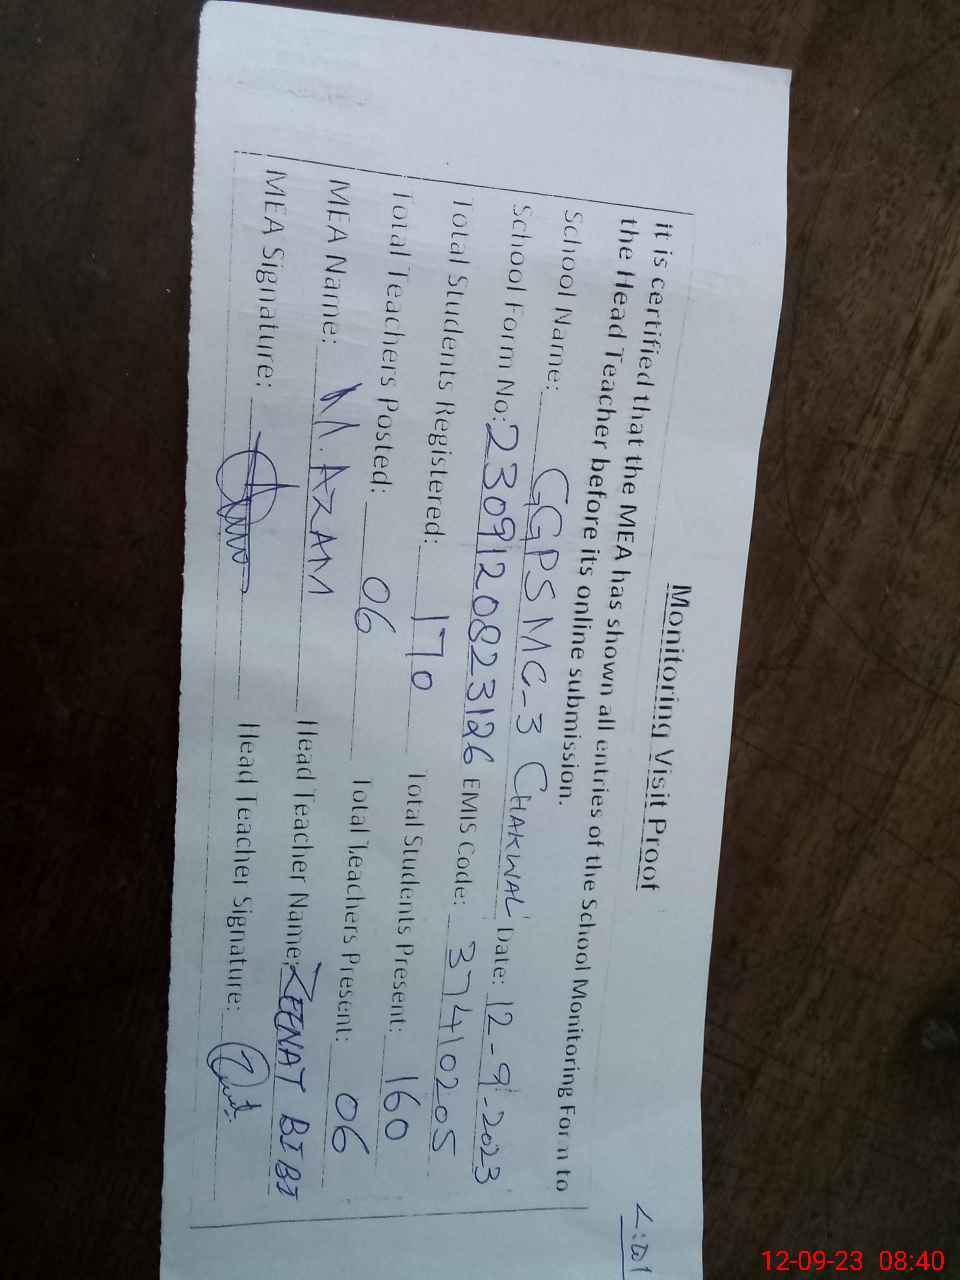 Monitoring Visit Proof
it is certified that the MEA has shown all entries of the School Monitoring Form to
the Head Teacher before its online submission.
School Name: GGPS MC-3 CHAKWAL Date: 12-9-2023
School Form No: 2309120823126 EMIS Code: 37410205
Total Students Registered: 170 Total Students Present: 160
Total Teachers Posted: 06 Total Teachers Present: 06
MEA Name: M. AZAM Head Teacher Name: ZEENAT BIBI
MEA Signature: Head Teacher Signature:
12-09-23 08:40